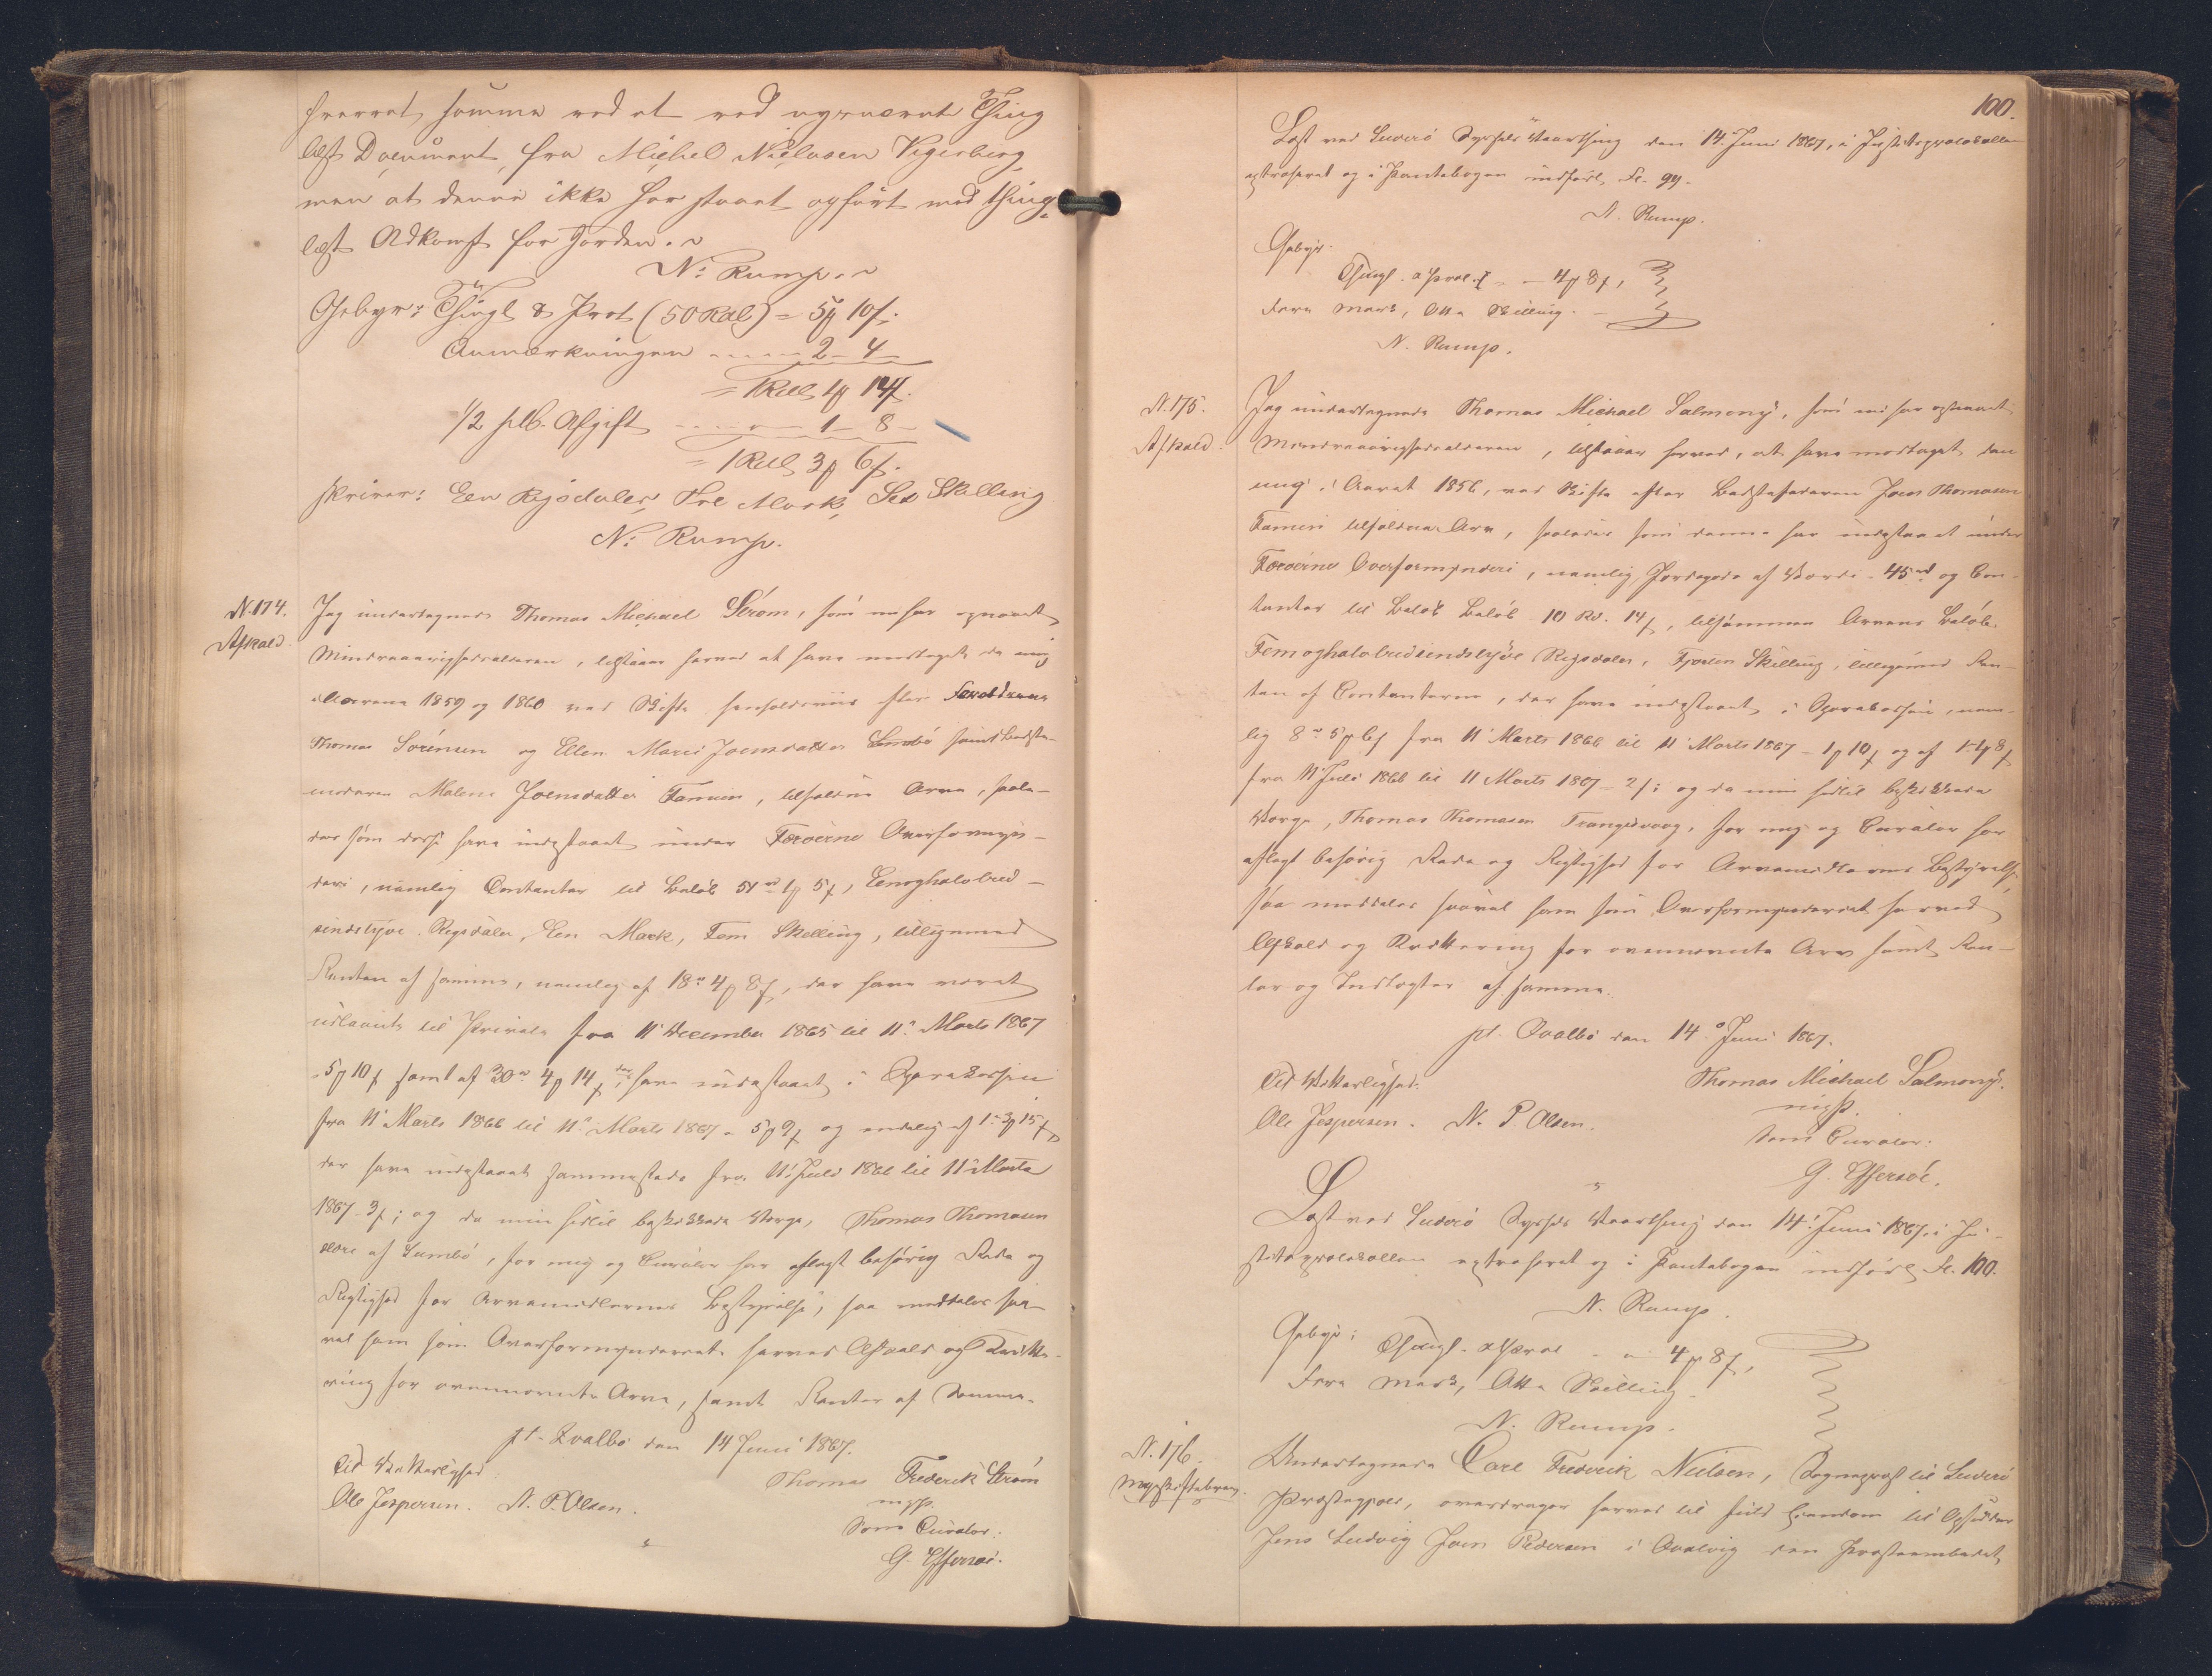 hvorvel samme ved et ved nysnævnte Thing
læst Document fra Michel Nielsen Vegerberg
men at denne ikke har staaet opført med thing=
læst Adkomst for Jorden.
N. Rump.
Gebyr: Thingl & Prot (50 Rdl) = 5 10
Anmærkningen 2 - 4
= 1 Rdl 1 14
1/2 pCt. Afgift 1 - 8 -
= 1 Rdl 3 6
skriver: Een Rigsdaler, Tre Mark, Sex Skilling
N. Rump.
N. 174.
Afkald
Jeg undertegnede Thomas Michael Strøm, som nu har opnaaet
Mindreaarighedsalderen, tilstaaer herved at have modtaget de mig
i Aarene 1859 og 1860 ved Skifte henholdsviis efter Forældrene
Thomas Sørensen og Ellen Marie Joensdatter Sumbø samt Bedste-
moderen Malene Joensdatter Famien, tilfaldne Arve, saale-
des som disse have indestaaet under Færøerne Overformyn-
deri, nemlig Contanter til Beløb 51 rd 1 5, Eenoghalvtred-
sindstyve Rigsdaler, Een Mark, Fem Skilling, tilligemed
Renten af samme, nemlig af 18 rd 4 8, der have været
udlaante til Private fra 11 December 1865 til 11 Marts 1867
5 10 samt af 30 rd 4 14 der have indestaaet i Sparekassen
fra 11 Marts 1866 til 11 Marts 1867 - 5 9 og endelig af 1 - 3 15
der have indestaaet sammesteds fra 11 Juli 1866 til 11 Marts
1867 - 3; og da min hidtil beskikkede Værge, Thomas Thomasen
ældre af Sumbø, for mig og Curator har aflagt behørig Rede og
Rigtighed for Arvemidlernes Bestyrelse, saa meddeles saa-
vel ham som Overformynderiet herved Afkald og Qvitte-
ring for ovennævnte Arve, samt Renter af Samme.
pt. Qvalbø den 14 Juni 1867.
Til Vitterlighed:
Thomas Frederik Strøm
Ole Jespersen. N. P. Olsen.
mpp.
Som Curator:
G. Effersøe.
100.
Læst ved Suderø Syssels Vaarthing den 14 Juni 1867, i Justitsprotokollen
extraheret og i Pantebogen indført, Fl. 99.
N. Rump.
Gebyr:
Thingl. & Prot. - 4 8,
Fire Mark, Otte Skilling.
N. Rump.
N. 175.
Afkald.
Jeg undertegnede Thomas Michael Salmony, som nu har opnaaet
Mindreaarighedsalderen, tilstaaer herved, at have modtaget den
mig i Aaret 1856, ved Skifte efter Bedstefaderen Joen Thomasen
Famien tilfaldne Arv, saaledes som denne har indestaaet under
Færøerne Overformynderi, nemlig Jordegods af Værdi 45 rd og Con-
tanter til Beløb Beløb 10 Rd. 14, tilsammen Arvens Beløb
Femoghalvtredsindstyve Rigsdaler, Fjorten Skilling, tilligemed Ren-
ten af Contanterne, der have indestaaet i Sparekassen, nem-
lig 8 rd 5 6 fra 11 Marts 1866 til 11 Marts 1867 - 1 10 og af 1 - 1 8
fra 11 Juli 1866 til 11 Marts 1867 - 2; og da min hidtil beskikkede
Værge, Thomas Thomasen Trangisvaag, for mig og Curator har
aflagt behørig Rede og Rigtighed for Arvemidlernes Bestyrelse,
saa meddeles saavel ham som Overformynderiet herved
Afkald og Qvittering for ovennævnte Arv samt Ren-
ter og Indtægter af samme.
pt. Qvalbø den 14 Juni 1867.
Til Vitterlighed:
Thomas Michael Salmony.
mpp.
Ole Jespersen. N. P. Olsen.
Som Curator:
G. Effersøe.
Læst ved Suderø Syssels Vaarthing den 14 Juni 1867, i Ju-
stitsprotokollen extraheret og i Pantebogen indført Fl. 100.
N. Rump.
Gebyr: Thingl. & Prot - 4 8,
Fire Mark, Otte Skilling.
N. Rump.
N. 176.
Mageskiftebrev.
Undertegnede Carl Frederik Nielsen, Sognepræst til Suderø
Præstegjeld, overdrager herved til fuld Eiendom til Opsidder
Jens Ludvig Joen Pedersen i Qvalvig den Præsteembedet